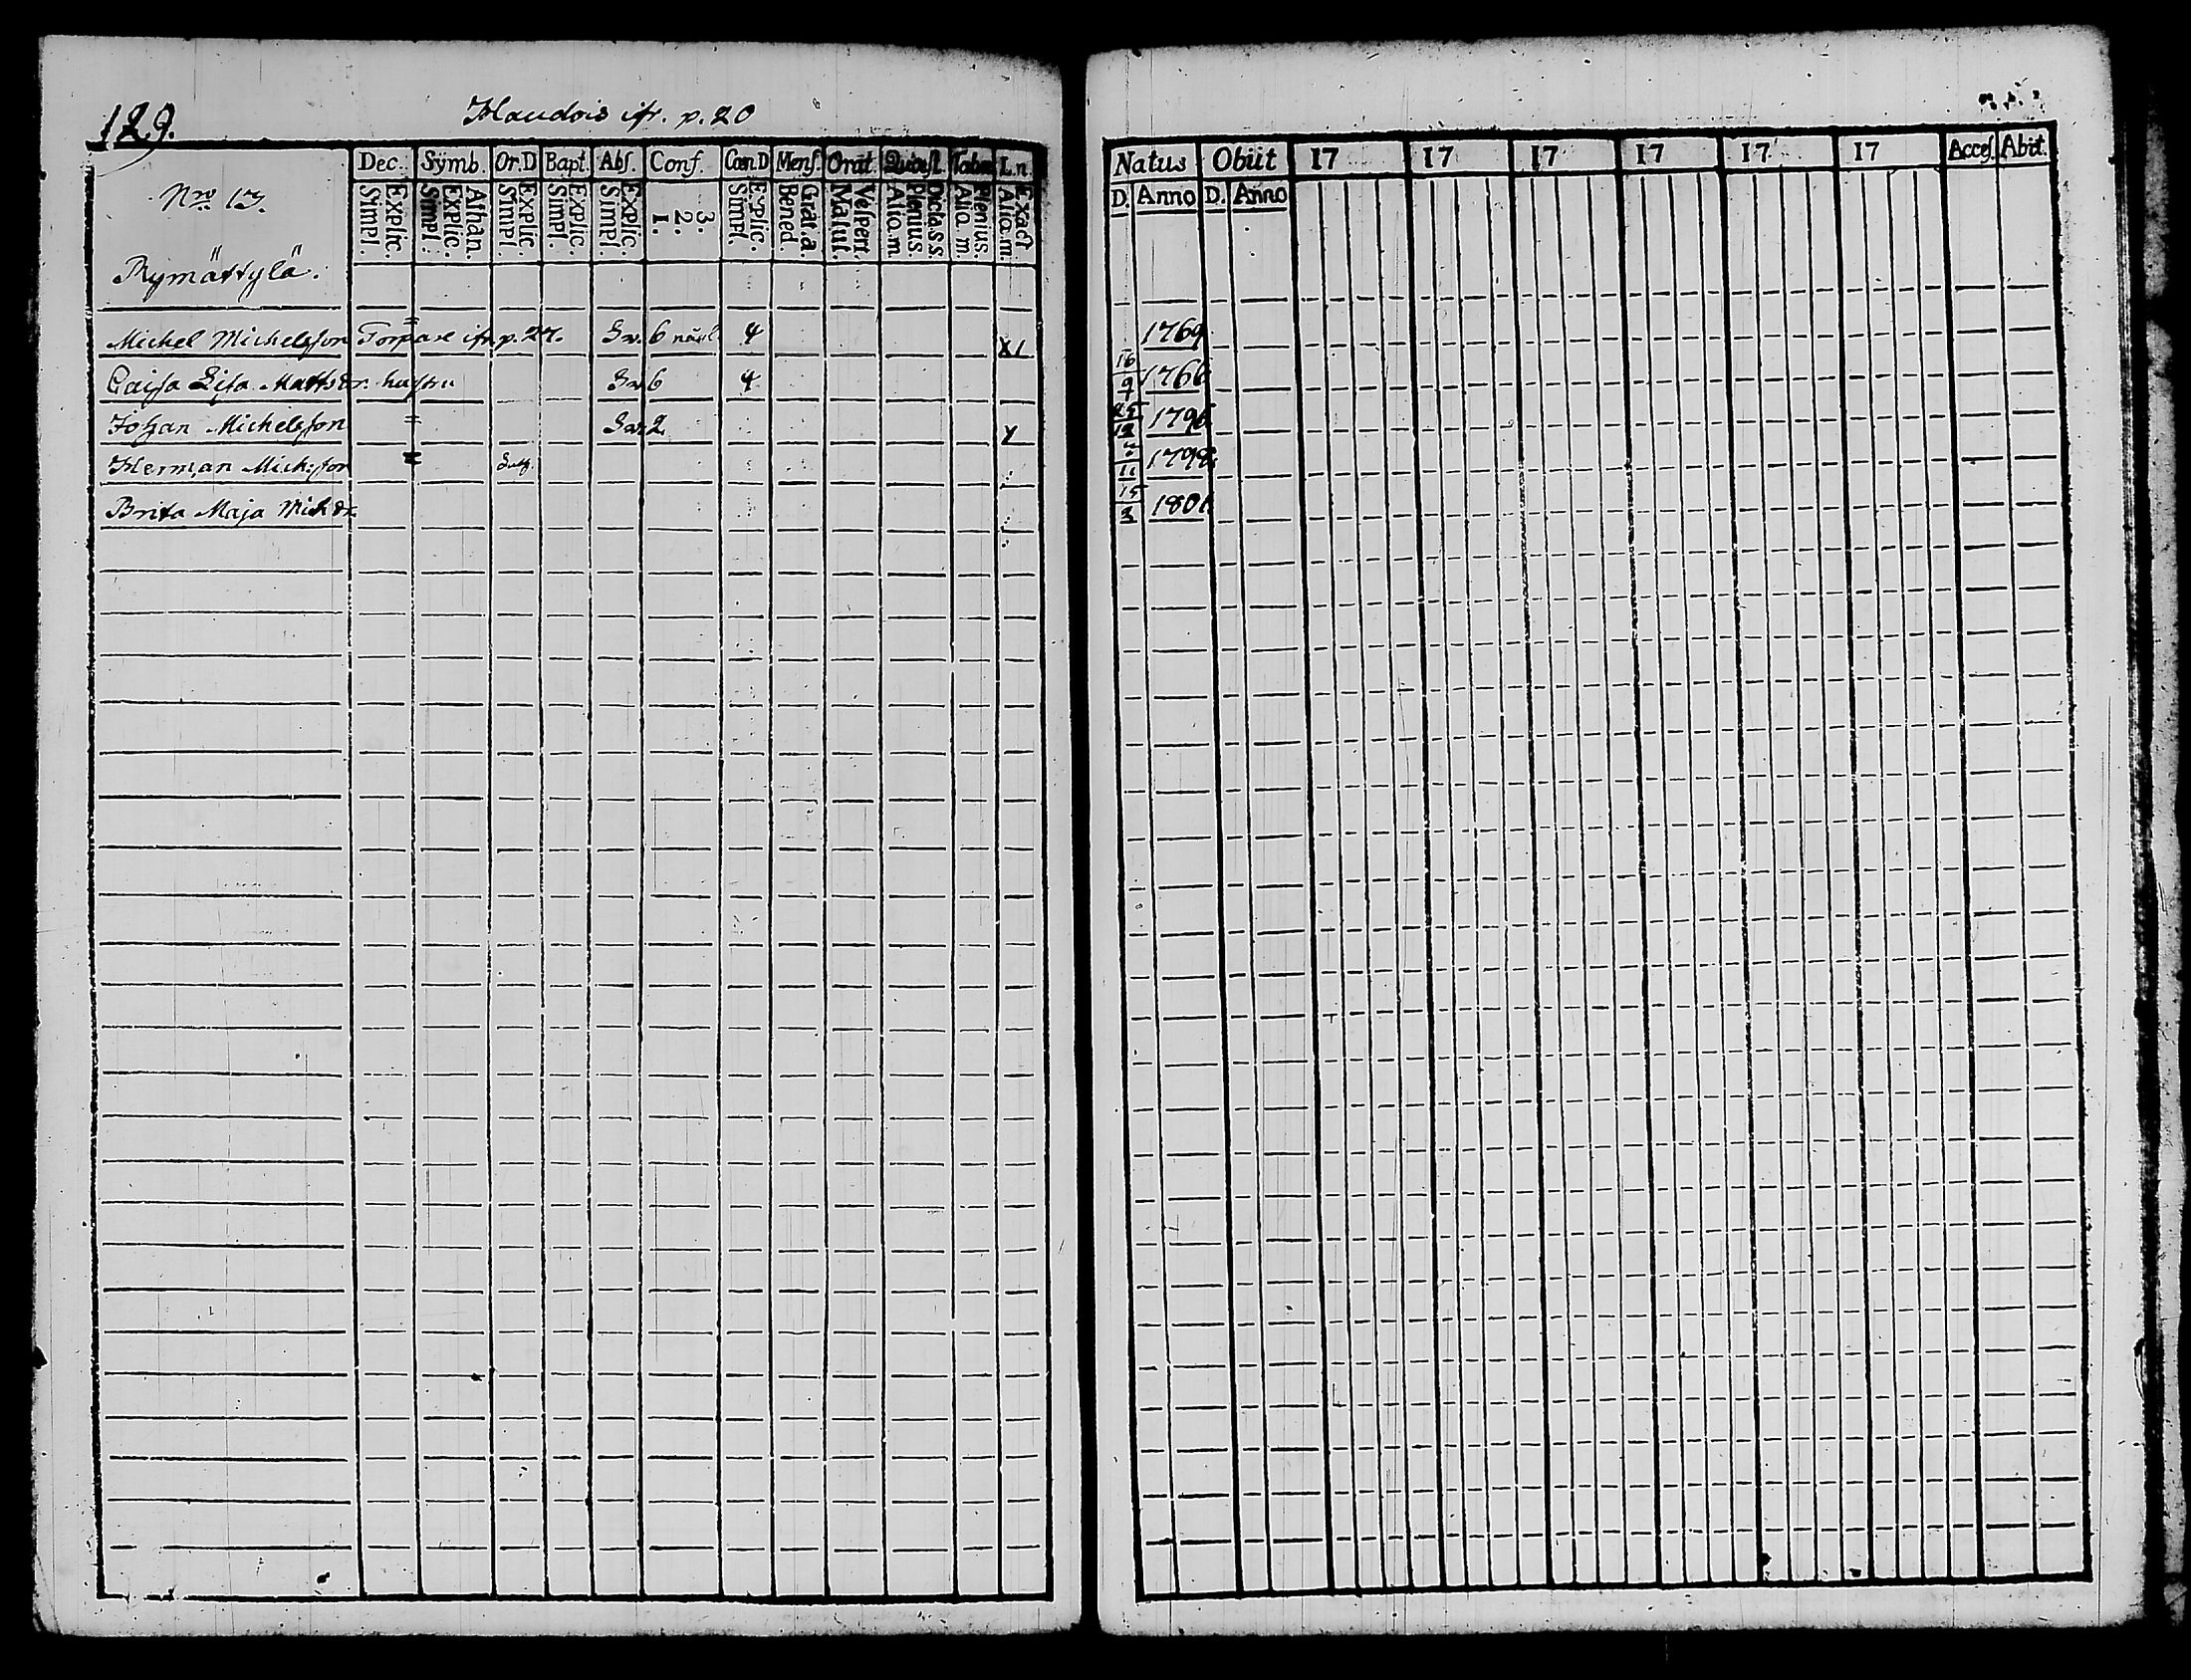 129.
Haudois ifr. p. 20
Dec. Symb. Or.D Bapt. Abs. Conf. Cœn D Mens. Orat. Quæst. Tabœ L.n.
Nro 13.
Simpl. Explic. Simpl. Explic. Athan. Simpl. Explic. Simpl. Explic. Simpl. Explic. 1. 2. 3. Simpl. Explic. Bened. Grat.a. Matut. Vesper. Aliq.m. Plenius. Dicta.s.s. Aliq.m. Plenius. Aliq.m. Exact
Rymättylä.
Michel Michelsson Torpare ifr. p. 27. Sv. 6 4 X
Caisa Lisa Mattsdr. hustru Sv 6 4
Johan Michelsson Sv. 2
Herman Mich:son
Brita Maja Michdr
Natus Obiit 17 17 17 17 17 17 Acces. Abiit.
D. Anno D. Anno
1769
16/9 1766
25/12 1796
11 1798
15/3 1801